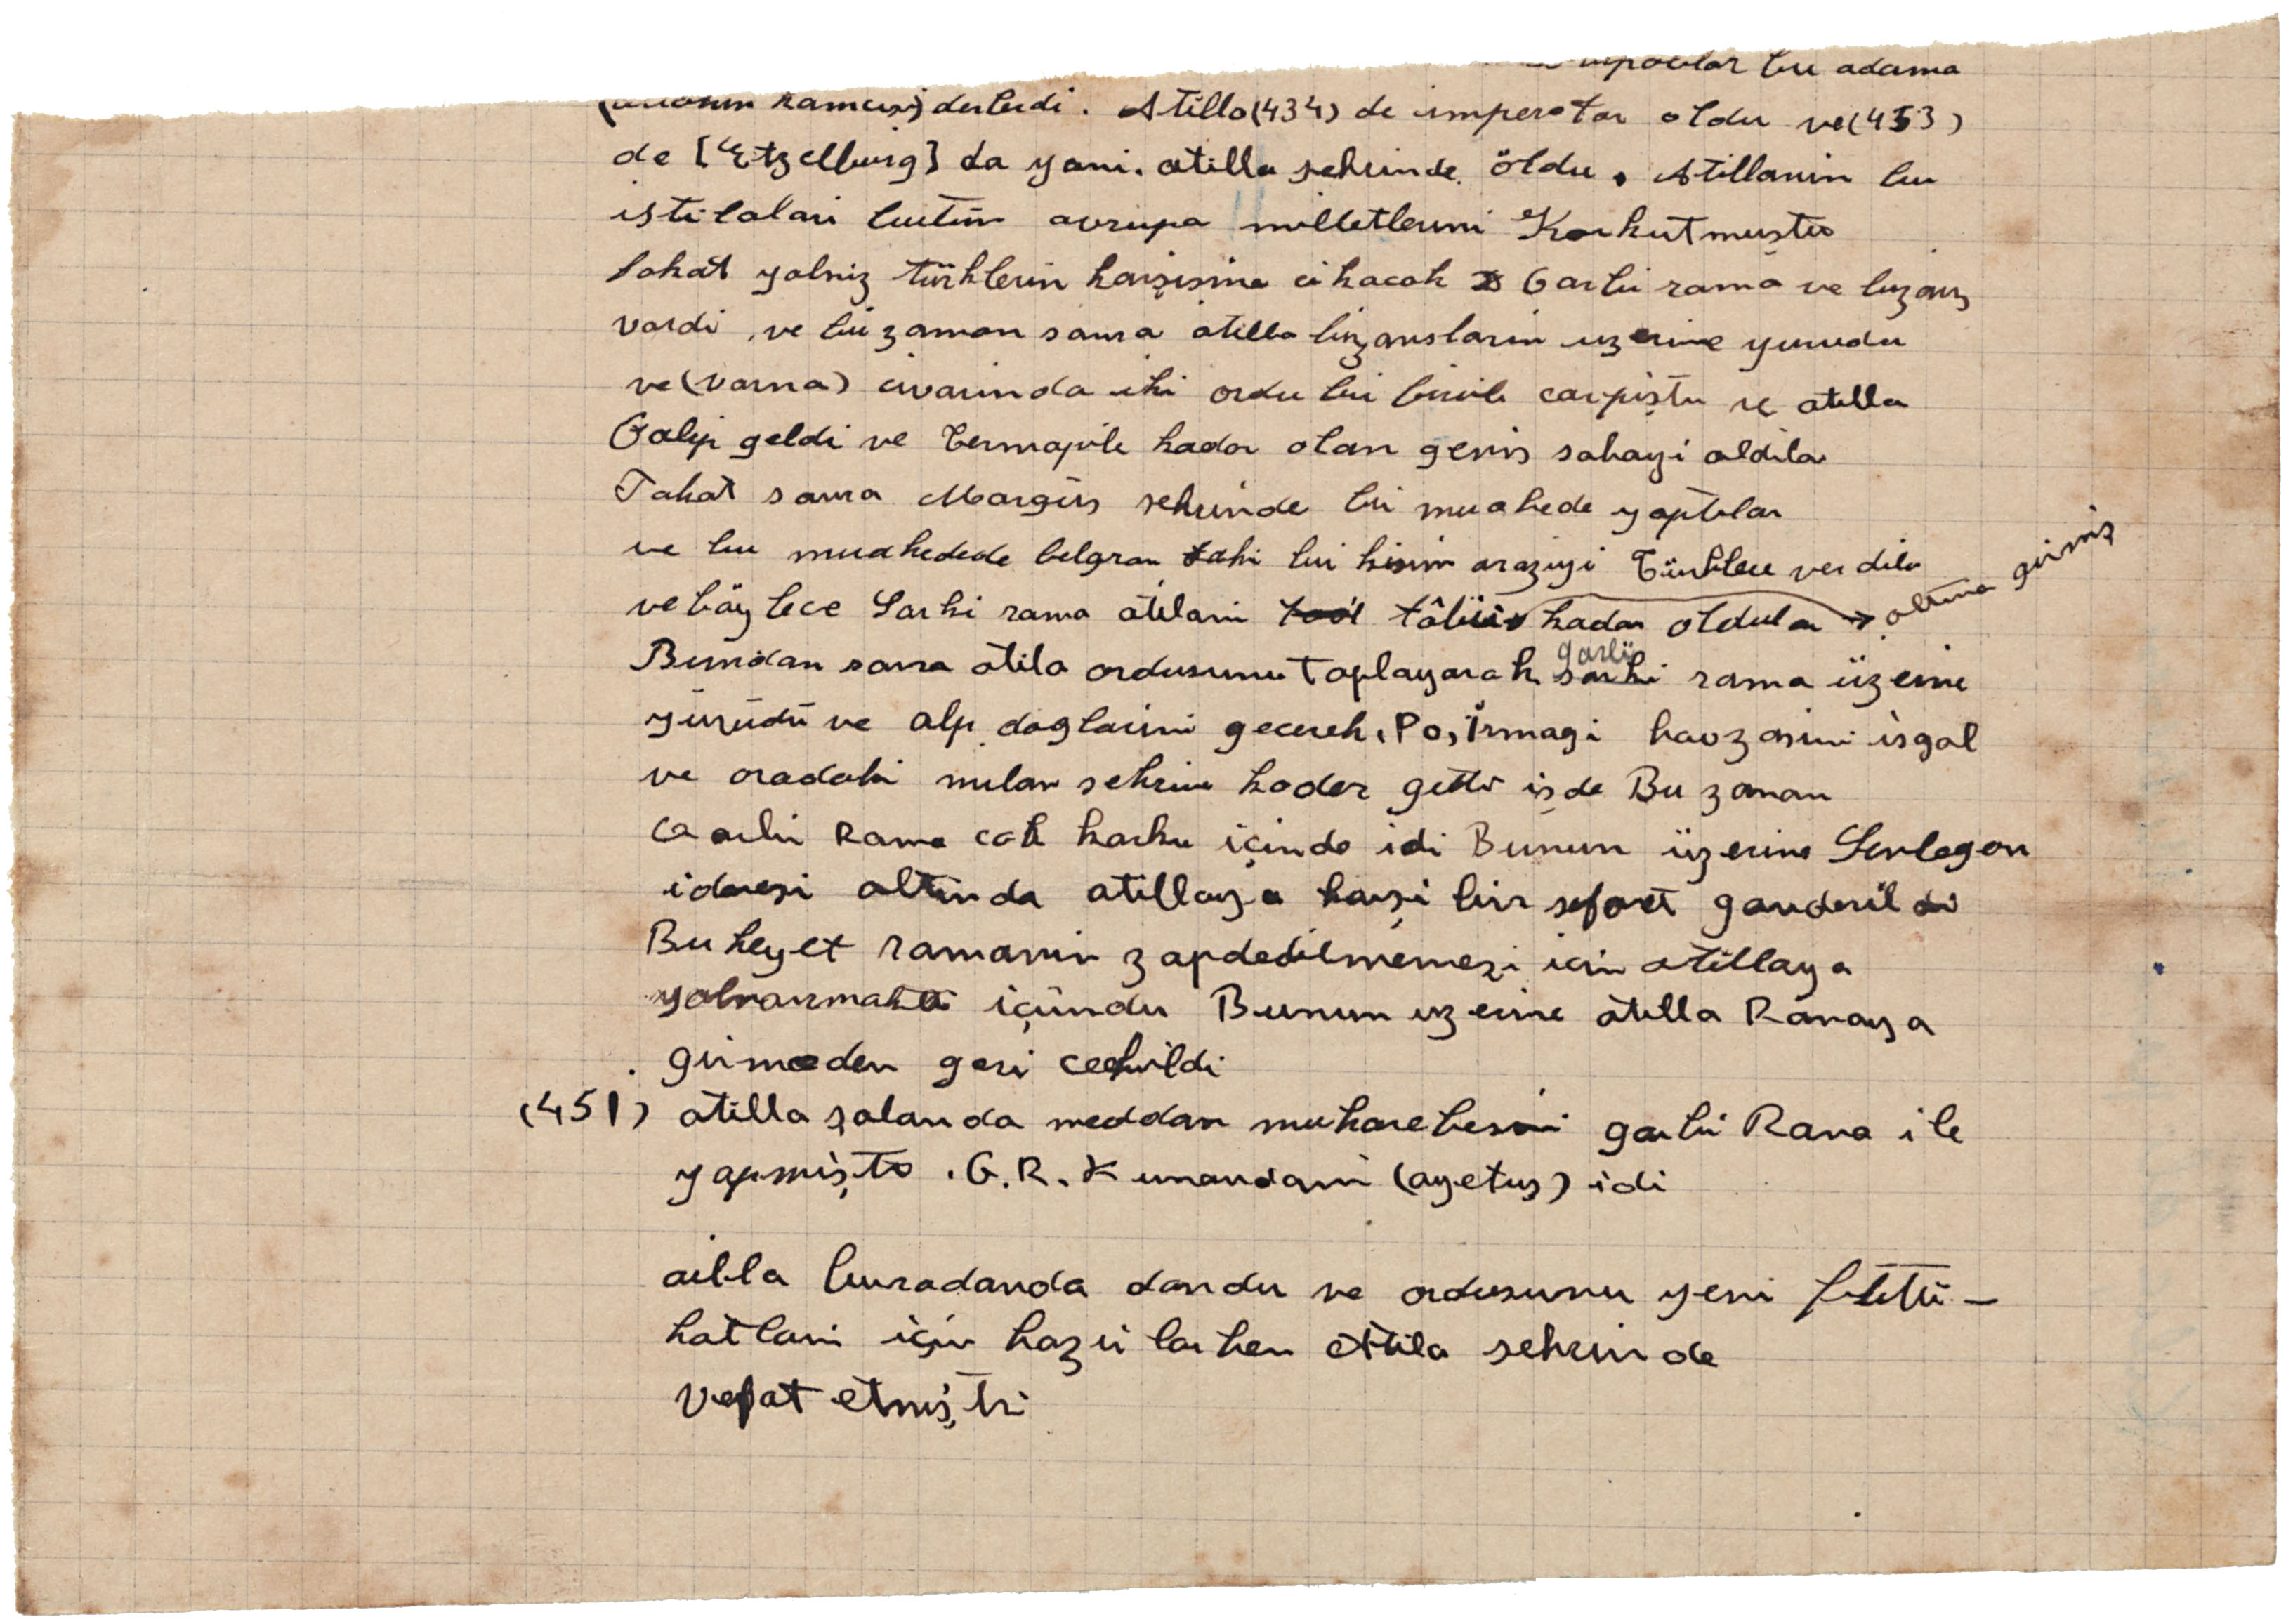 bu adama
derlerdi. Atilla (434) de imperator oldu ve (453)
de [Etzelburg] da yani. atilla şehrinde öldu. Atillanin bu
istilalari butün avrupa milletlerini Korkutmuştu
fakat yalniz türklerin karşisina cikacak Garbi roma ve bizans
vardi, ve bir zaman sonra atilla bizansların uzerine yurudu
ve (varna) civarinda iki ordu bir birile carpiştu ve atilla
Galip geldi ve Termopile kadar olan geniş sahayi aldilar
Fakat sonra Margüs şehrinde bir muahede yaptilar
ve bu muahedede belgrau taki bir kisim araziyi Türklere verdiler
ve böylece Şarki roma atilani tâbiisi kadar oldular → altına girmiş
Bundan sonra atila ordusunu Toplayarak garbi şarki roma üzerine
yürüdü ve alp daglarini gecerek, Po, Irmagi havzasini işgal
ve oradaki milan sehrine kadar getti işde Bu zaman
Garbi Roma cok korku içinde idi Bunun üzerine Senlegon
idaresi altinda atillaya karşi bir sefaret gonderildi
Bu heyet romanin zapdedilmemezi icin atillaya
yalvarmakta içündu Bunun uzerine atilla Romaya
girmeden geri cekildi
(451) atilla şalonda meddan muharebesini garbi Roma ile
yapmişto. G.R. Kumandani (ayetuş) idi
atilla buradanda dondu ve ordusunu yeni fütü-
hatlari için hazirlarken Attila sehrinde
vefat etmiştir